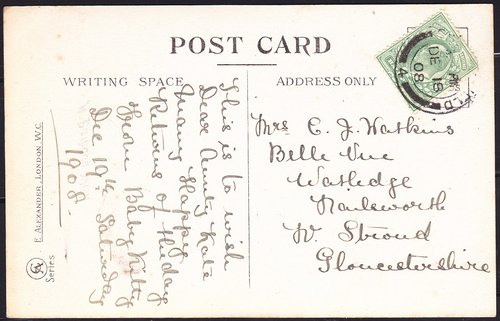 POST CARD
WRITING SPACE
ADDRESS ONLY
This is to wish
Dear Aunty Kate
Many Happy
Returns of the day
From Baby Kitty
Dec 19th Saturday
1908.
Mrs C. J. Watkins
Belle Vue
Watledge
Nailsworth
Nr Stroud
Gloucestershire
DE 18
08
4
E. ALEXANDER, LONDON W.C.
Series